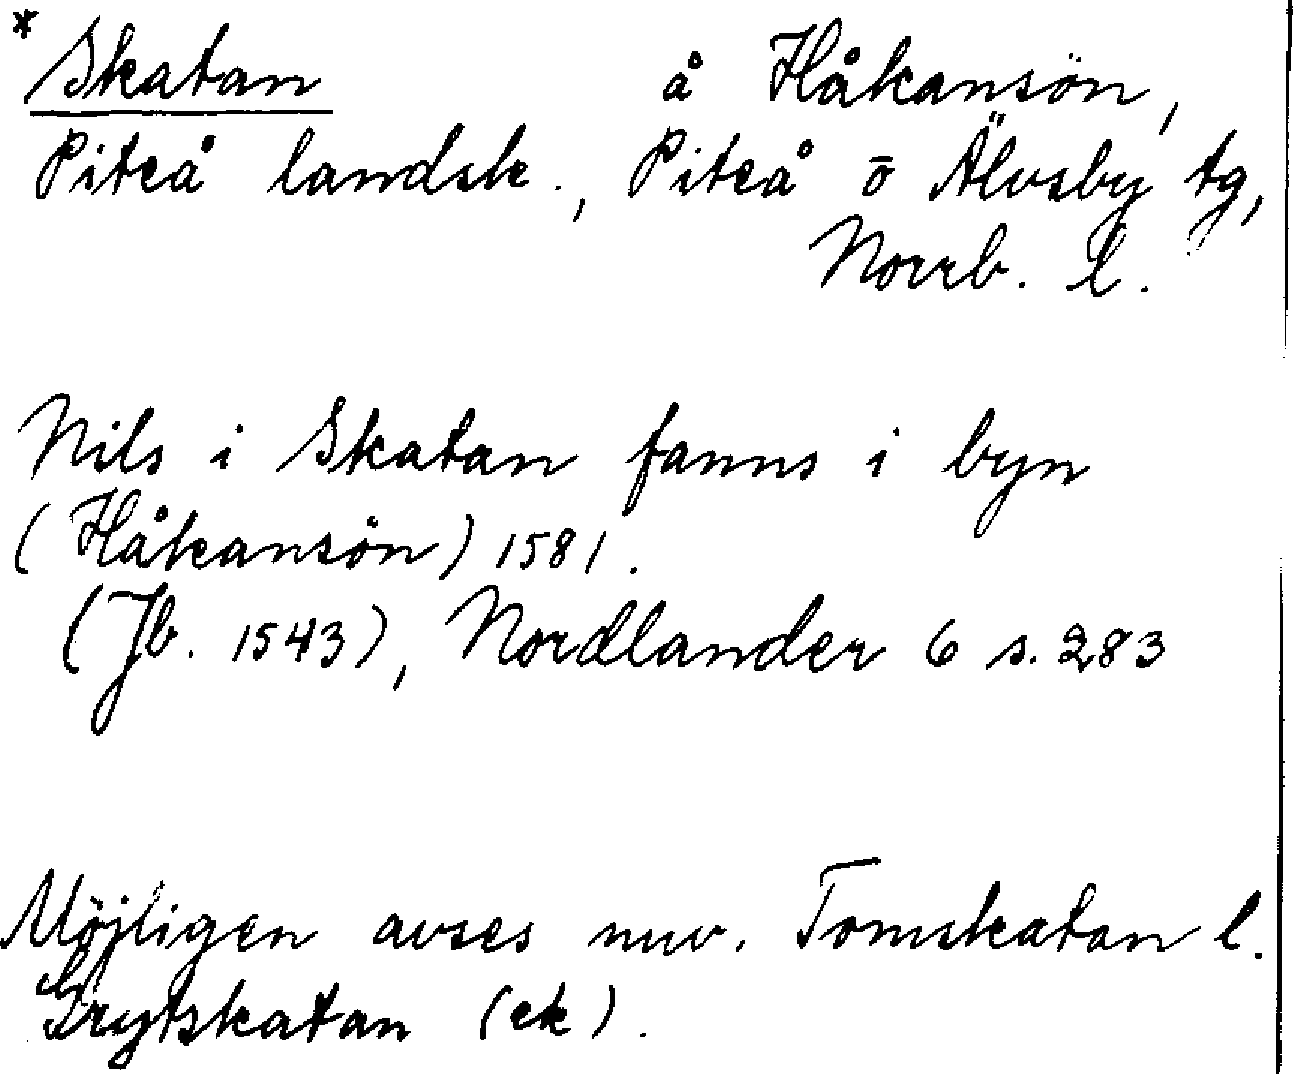 *Skatan å Håkansön,
Piteå landsk., Piteå o Älvsby tg,
Norrb. l.
Nils i Skatan fanns i byn
(Håkansön) 1581.
(Jb. 1543), Nordlander 6 s. 283
Möjligen avses nuv. Tomskatan l.
Grytskatan (ek).